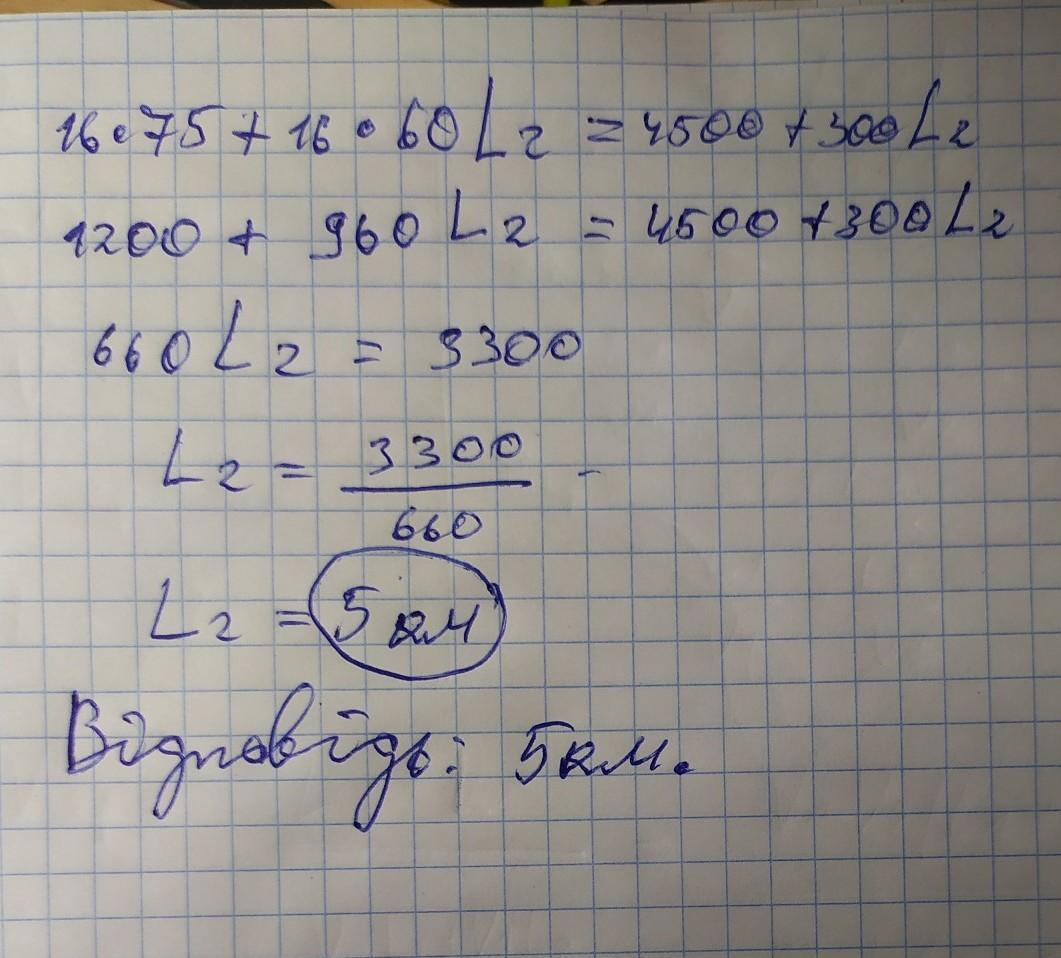 16·75+16·60L2=4500+300L2
1200+960L2=4500+300L2
660L2=3300
L2=3300/660
L2=5км
Відповідь: 5км.